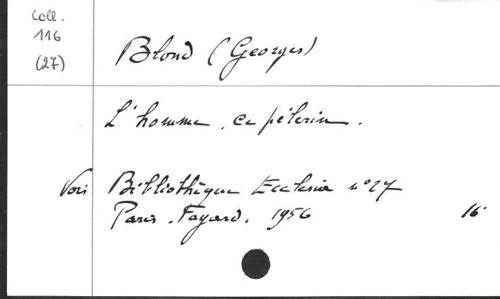 Coll.
116
(27)
Blond (Georges)
L'homme, ce pèlerin.
Voir Bibliothèque Ecclesia n°27
Paris. Fayard. 1956 16°